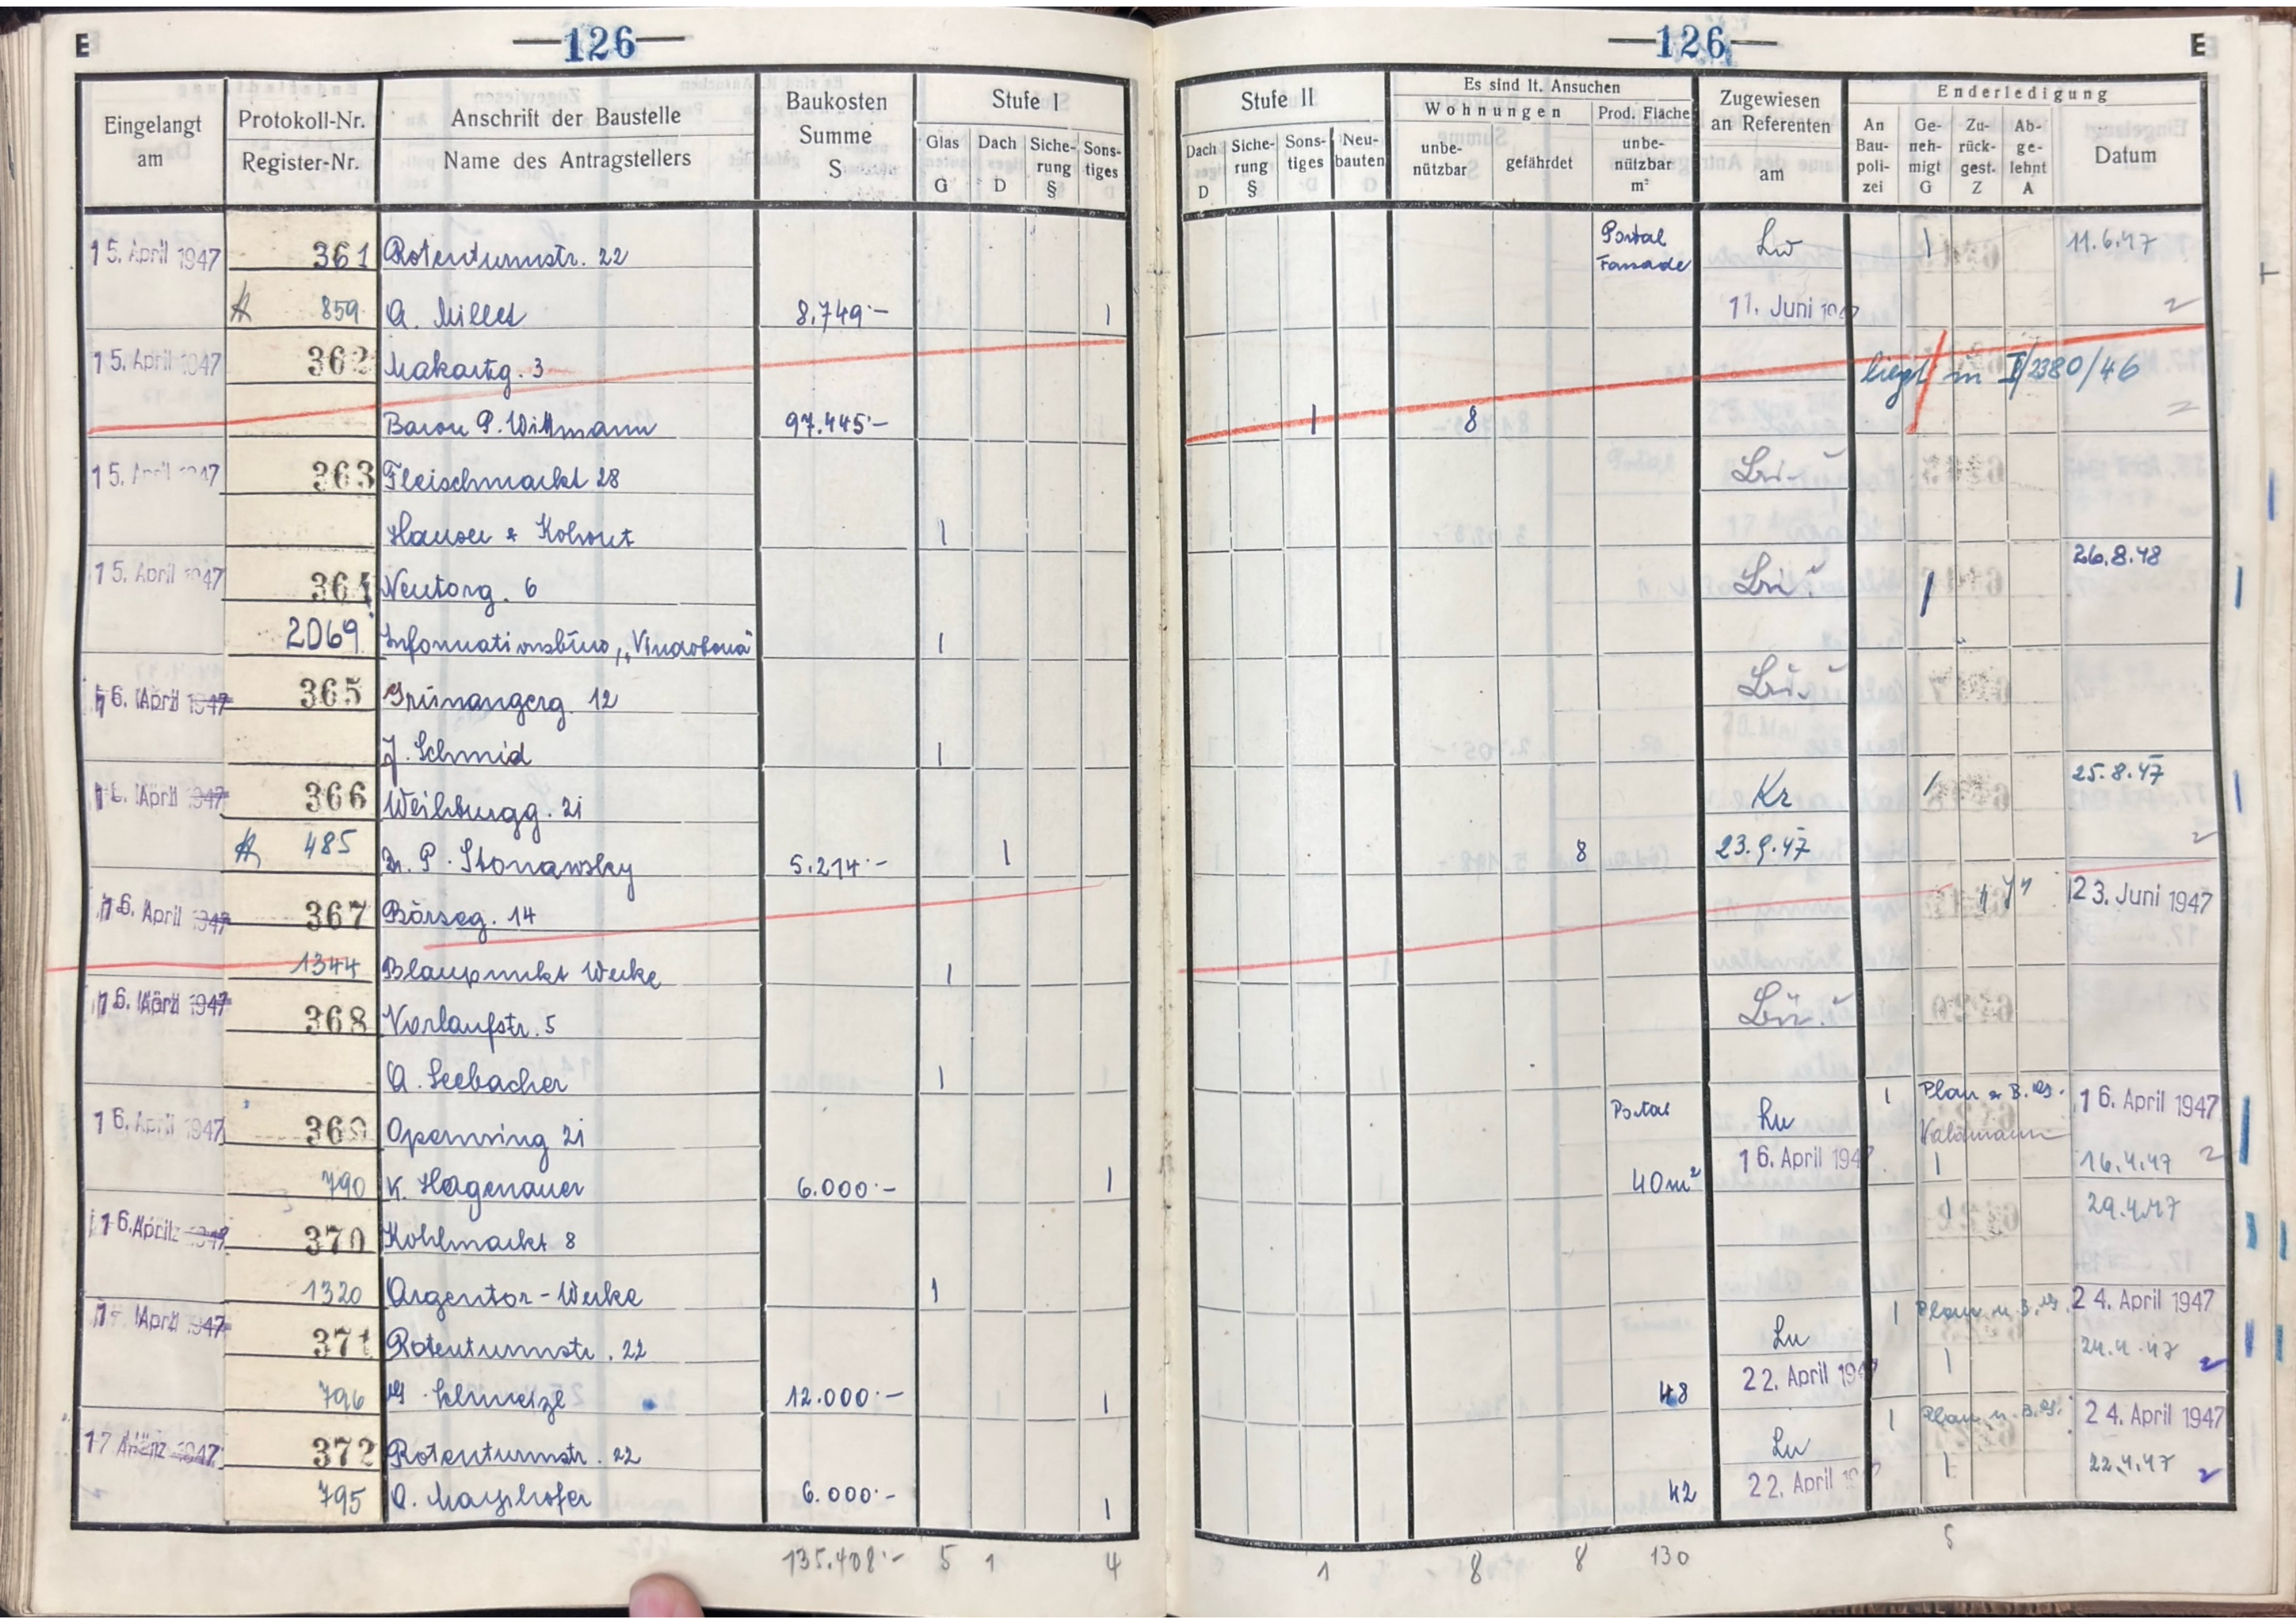 E —126—
—126— E
Eingelangt am
Protokoll-Nr.
Register-Nr.
Anschrift der Baustelle
Name des Antragstellers
Baukosten Summe S
Stufe I
Glas G
Dach D
Siche-rung §
Sons-tiges
Stufe II
Dach D
Siche-rung §
Sons-tiges
Neu-bauten
Es sind lt. Ansuchen
Wohnungen
unbe-nützbar
gefährdet
Prod. Fläche
unbe-nützbar m²
Zugewiesen an Referenten am
Enderledigung
An Bau-poli-zei
Ge-neh-migt G
Zu-rück-gest. Z
Ab-ge-lehnt A
Datum
15. April 1947 361 Rotenturmstr. 22 Portal Fassade 1 11.6.47
859 A. Millet 8.749·— 1 11. Juni
15. April 1947 362 Makartg. 3 liegt in I/2380/46
Baron P. Wittmann 97.445·— 1 8
15. April 1947 363 Fleischmarkt 28
Hauser & Kohout 1
15. April 1947 364 Neutorg. 6 1 26.8.48
2069 Informationsbüro „Vindobona" 1
16. April 1947 365 Grünangerg. 12
J. Schmid 1
April 1947 366 Weihburgg. 21 Kr 1 25.8.47
485 Dr. P. Stonawsky 5.214·— 1 8 23.9.47
16. April 1947 367 Börseg. 14 23. Juni 1947
1344 Blaupunkt Werke 1
16. 1947 368 Vorlaufstr. 5
A. Seebacher 1
16. April 1947 369 Opernring 21 Portal Lu 1 Plan 16. April 1947
790 K. Hagenauer 6.000·— 1 40m² 16. April 194 1 16.4.47
16. April 370 Kohlmarkt 8 1 29.4.47
1320 Argentor-Werke 1
April 1947 371 Rotenturmstr. 22 Lu 1 Plan 24. April 1947
796 12.000·— 1 48 22. April 194 1 24.4.47
17 1947 372 Rotenturmstr. 22 Lu 1 Plan 24. April 1947
795 A. Mayrhofer 6.000·— 1 42 22. April 1 22.4.47
135.408·— 5 1 4 1 8 8 130 5